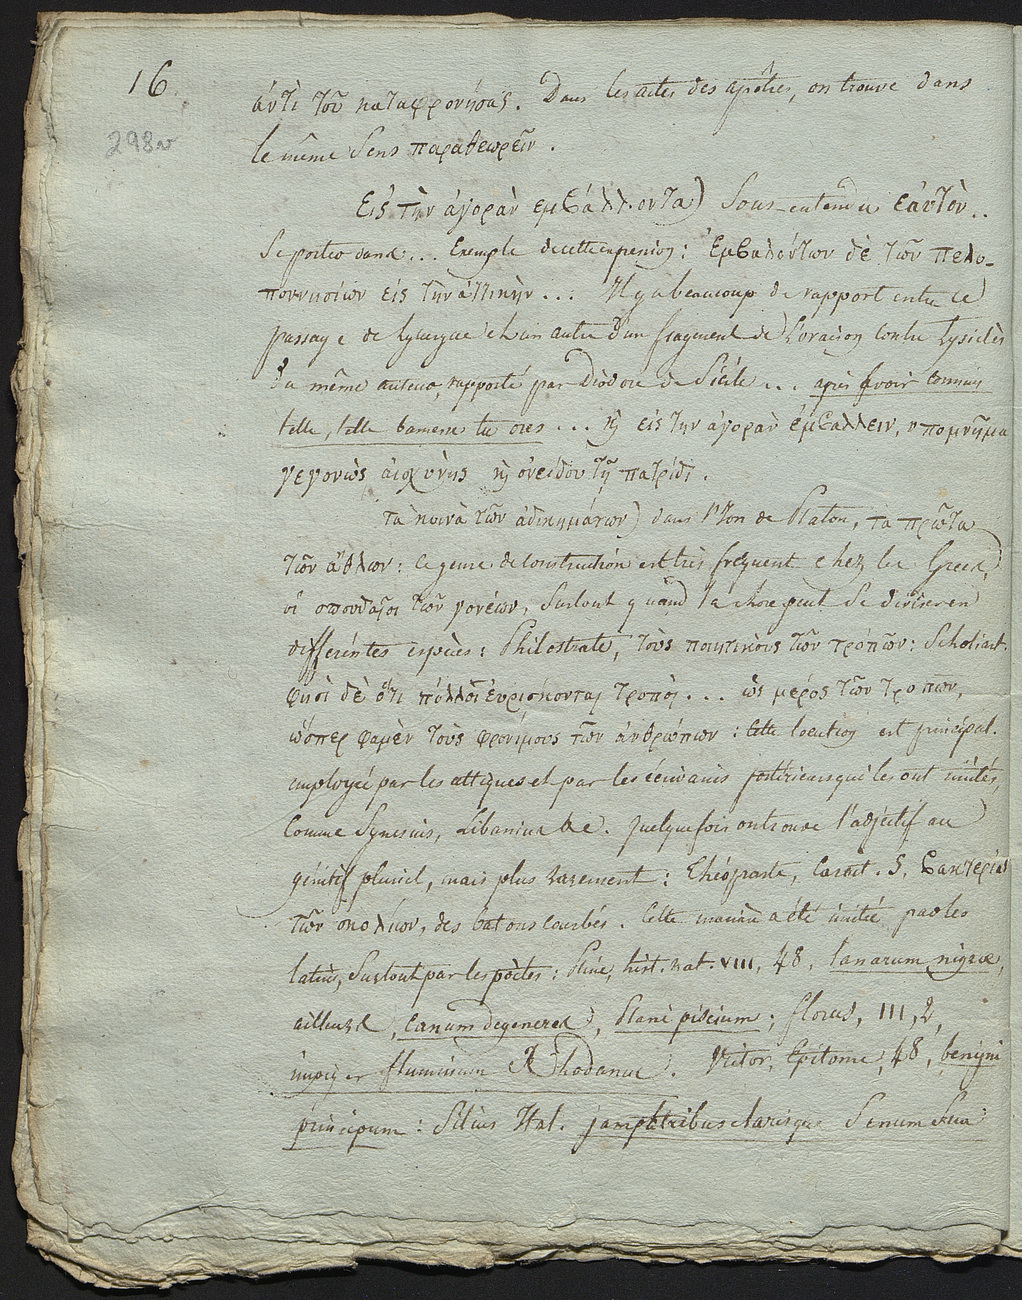 16
298v
ἀντὶ τοῦ καταφρονήσας. Dans les actes des apôtres, on trouve dans
le même sens παραθεωρεῖν.
Εἰς τὴν ἀγορὰν ἐμβάλλοντα) Sous-entendu ἑαυτὸν..
Se porter dans... Exemple de cette expression: Ἐμβαλόντων δὲ τῶν πελο-
ποννησίων εἰς τὴν ἀττικὴν... Il y a beaucoup de rapport entre ce
passage de Lycurgue et un autre d'un fragment de l'oraison contre Lysiclès
du même auteur, rapporté par Diodore de Sicile... après avoir commis
telle, telle tu oses... ϗ εἰς τὴν ἀγορὰν ἐμβάλλειν, ὑπομνῆμα
γεγονὼς αἰσχύνης ϗ ὀνείδου τῇ πατρίδι.
τὰ κοινὰ τῶν ἀδικημάτων) dans l'Ion de Platon, τὰ πρῶτα
τῶν ἄθλων: ce genre de construction est très fréquent chez les Grecs,
οἱ σπουδαῖοι τῶν γονέων, surtout quand la chose peut se diviser en
différentes espèces: Philostrate, τοὺς ποιητικοὺς τῶν τρόπων: Scholiast.
φησὶ δὲ ὅτι πολλοὶ εὑρίσκονται τρόποι... ὡς μέρος τῶν τρόπων,
ὥσπερ φαμὲν τοὺς φρονίμους τῶν ἀνθρώπων: Cette locution est principal.
employée par les attiques et par les écrivains postérieurs qui les ont imités,
comme Synesius, Libanius &c. quelquefois on trouve l'adjectif au
génitif pluriel, mais plus rarement: Théophraste, Caract. 5, βακτερίας
τῶν σκολιῶν, des batons courbés. Cette manière a été imitée par les
latins, surtout par les poètes: Pline, hist. nat. VIII, 48, lanarum nigrae,
ailleurs, canum degeneres, plani piscium; florus, III, 2,
impiger fluminum Rhodanus. Victor, Epitome, 48, benigni
principum: Silius Ital. jamque tribus clarisque senum sua